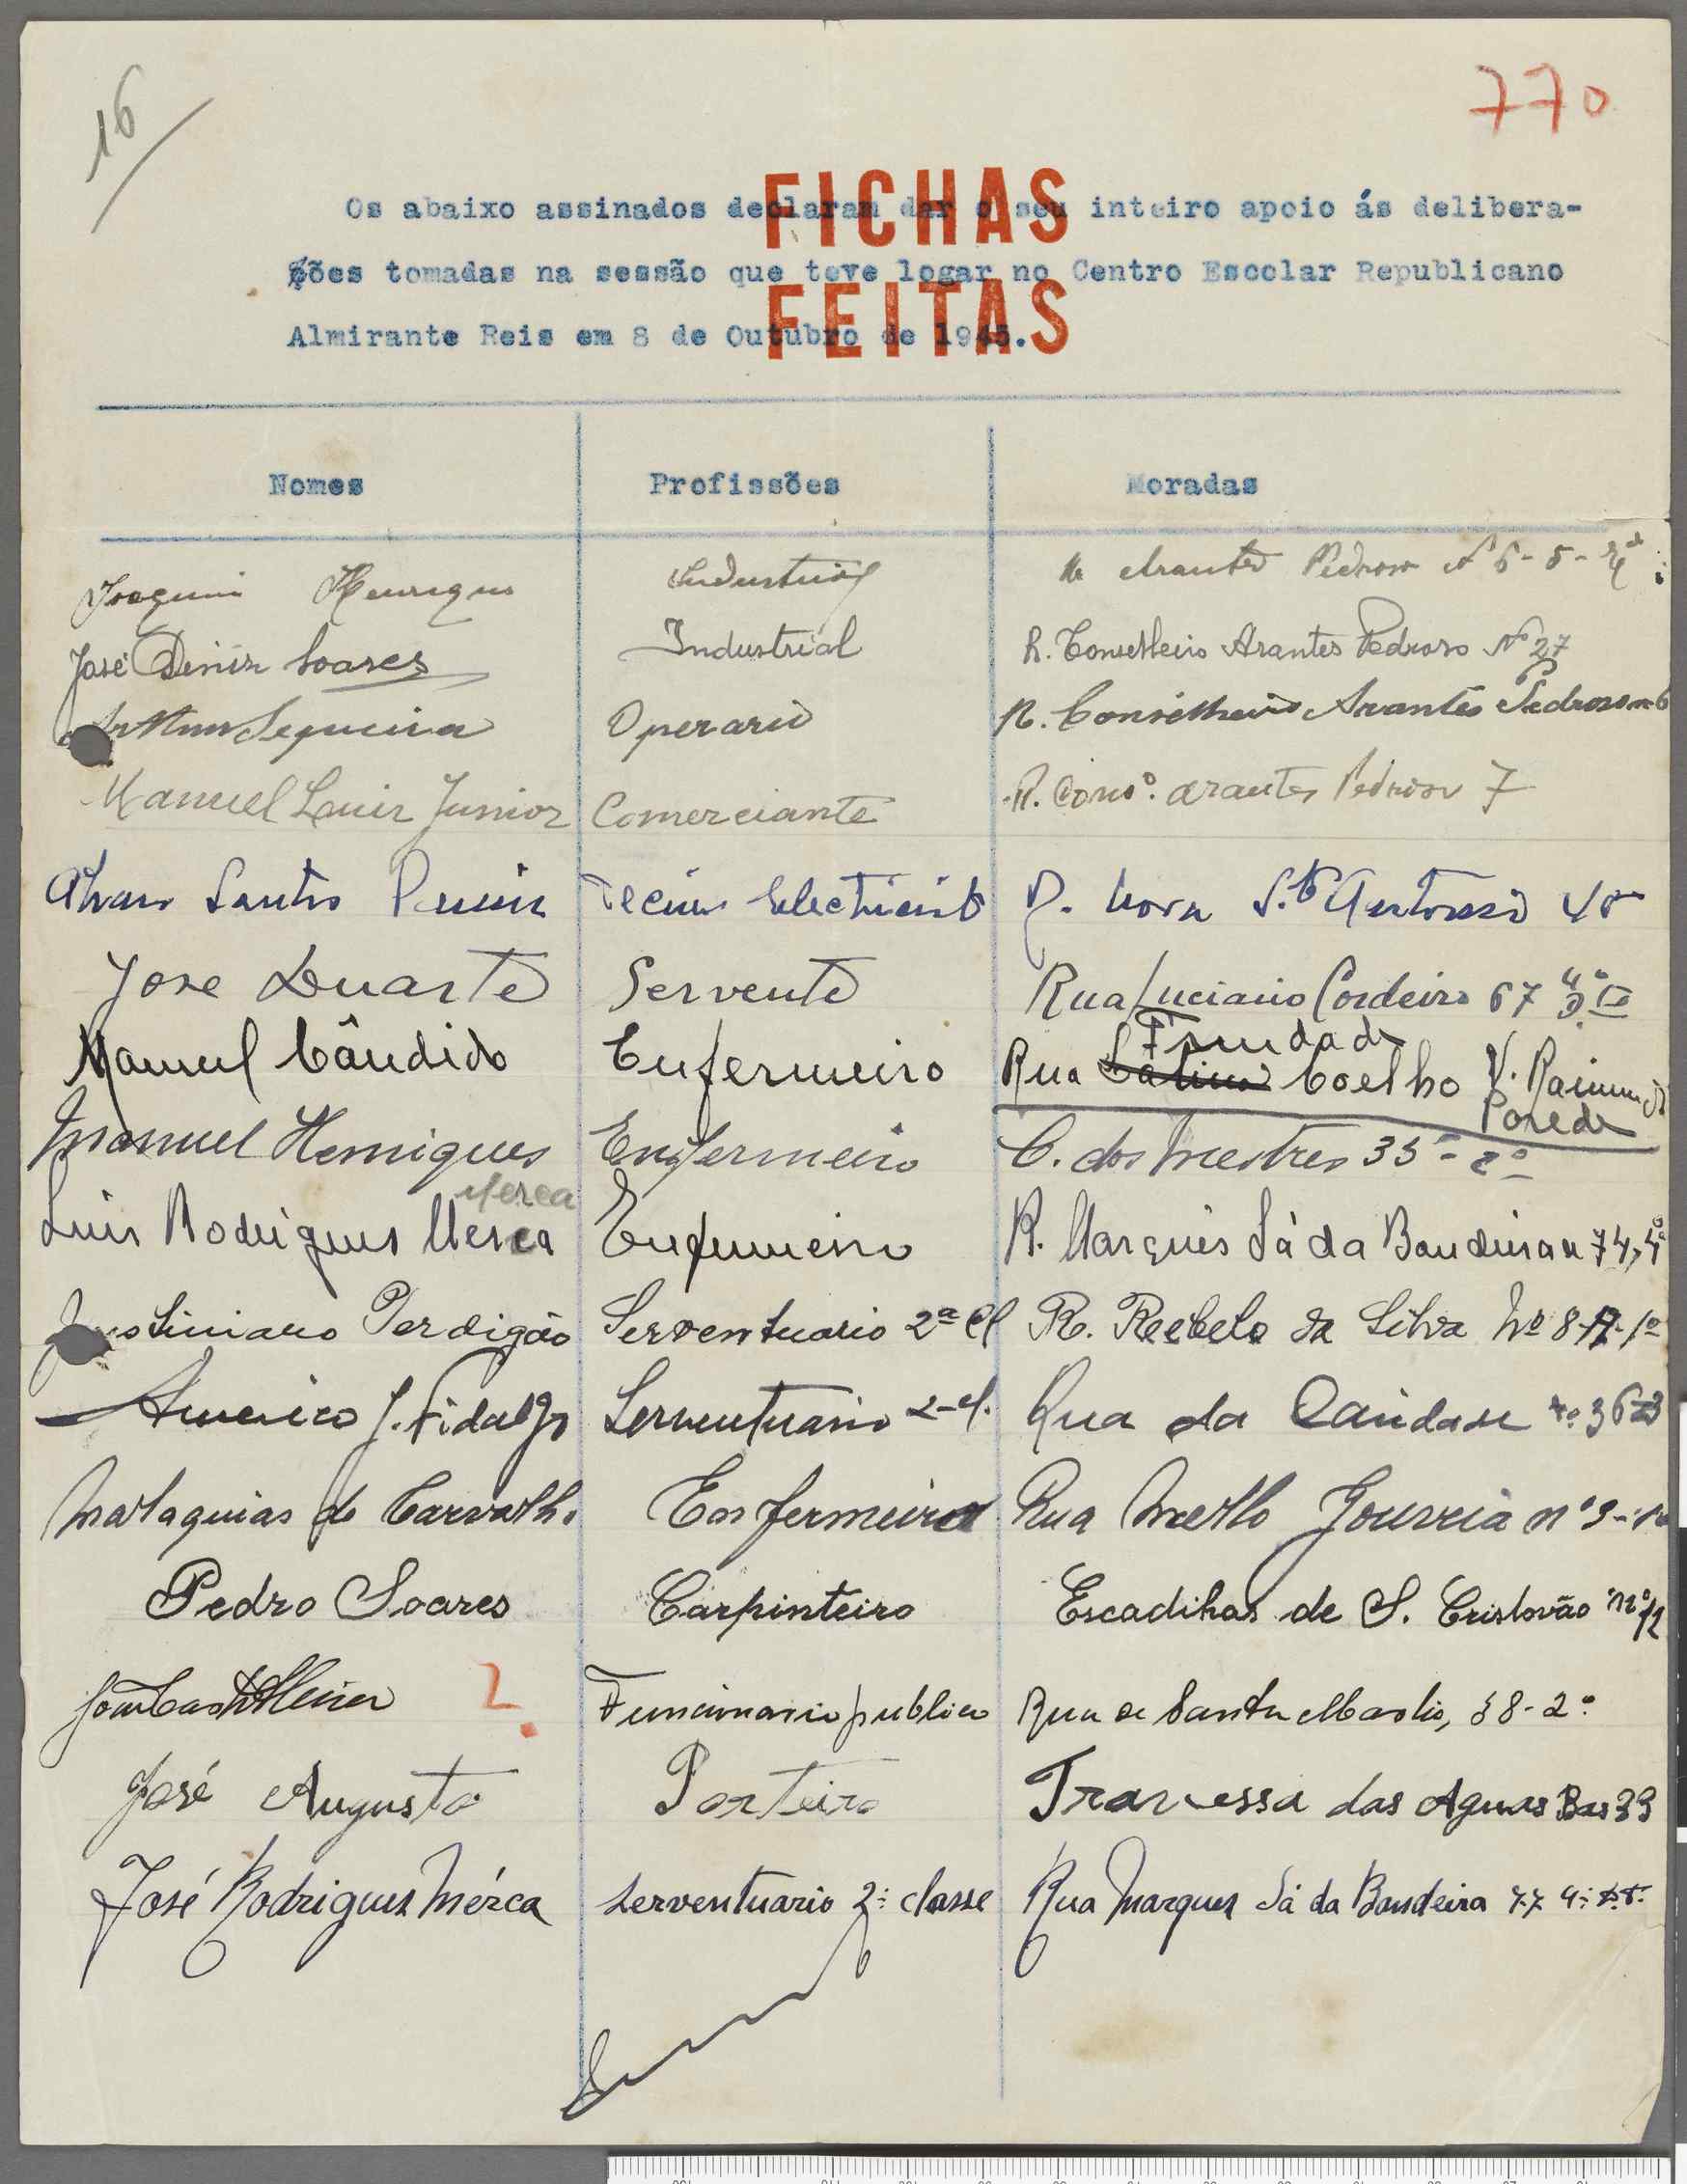 16
770
FICHAS
FEITAS
Os abaixo assinados declaram dar o seu inteiro apoio ás delibera-
ções tomadas na sessão que teve logar no Centro Escolar Republicano
Almirante Reis em 8 de Outubro de 1945.
Nomes Profissões Moradas
Joaquim Henriques Industrial Arantes Pedroso
José Diniz Soares Industrial R. Conselheiro Arantes Pedroso Nº 27
Arthur Sequeira Operario R. Conselheiro Arantes Pedroso
Manuel Luiz Junior Comerciante R. Consº. Arantes Pedroso 7
Santos electricista R. Nova S.to Antonio
Jose Duarte Servente Rua Luciano Cordeiro 67 4º D.to
Manuel Cândido Enfermeiro Rua Latino Trindade Coelho V. Raimundo
Parede
Manuel Henriques Enfermeiro C. dos Mestres 35 - 2º
Merca
Luis Rodrigues Merca Enfermeiro R. Marquês Sá da Bandeira 74, 4º
Justiniano Perdigão Serventuario 2ª cl R. Rebelo da Silva Nº 8-A-1º
Americo J. Fidalgo Serventuario 2-cl. Rua da 36
Malaquias de Carvalho Enfermeiro Rua Mello Gouveia nº 9-1º
Pedro Soares Carpinteiro Escadihas de S. Cristovão nº 12
? Funcionario publico Rua de Santa Marta, 38-2º
José Augusto Porteiro Travessa das Aguas Boas 33
José Rodrigues Mérca Serventuario 2ª classe Rua Marques Sá da Bandeira 77 4º